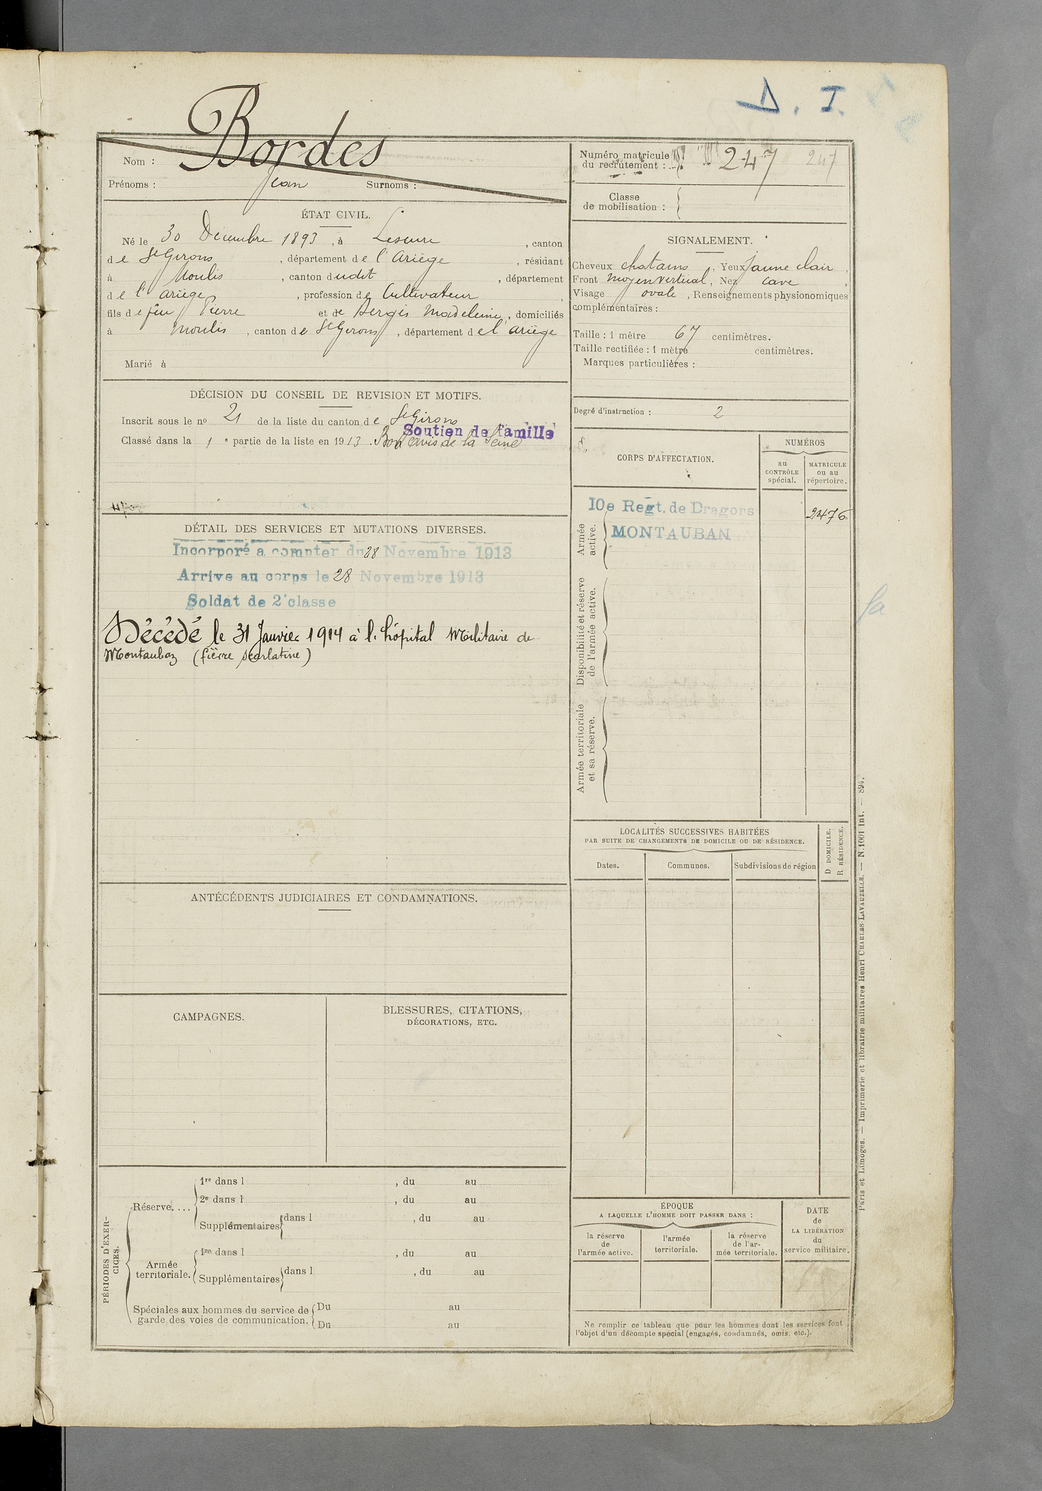 D. I.
Nom : Bordes
Prénoms : Jean Surnoms :
Numéro matricule du recrutement : 247 247
Classe de mobilisation :
ÉTAT CIVIL.
Né le 30 Décembre 1893, à , canton
de St Girons, département de l'Ariège, résidant
à Moulis, canton dudit, département
de l'Ariège, profession de Cultivateur,
fils de feu Pierre et de Bergès Madeleine, domiciliés
à Moulis, canton de St Girons, département de l'Ariège
Marié à
SIGNALEMENT.
Cheveux chatains, Yeux jaune clair,
Front moyen vertical, Nez cave,
Visage ovale, Renseignements physionomiques
complémentaires :
Taille : 1 mètre 67 centimètres.
Taille rectifiée : 1 mètre centimètres.
Marques particulières :
DÉCISION DU CONSEIL DE REVISION ET MOTIFS.
Inscrit sous le no 21 de la liste du canton de St Girons
Classé dans la 1 e partie de la liste en 1913. Bon
Soutien de Famille
Degré d'instruction : 2
CORPS D'AFFECTATION.
NUMÉROS
au CONTRÔLE spécial.
MATRICULE ou au répertoire.
Armée active.
10e Regt. de Dragons
MONTAUBAN
2476
Disponibilité et réserve de l'armée active.
Armée territoriale et sa réserve.
DÉTAIL DES SERVICES ET MUTATIONS DIVERSES.
Incorporé a compter du 28 Novembre 1913
Arrive au corps le 28 Novembre 1913
Soldat de 2e classe
Décédé le 31 Janvier 1914 à l'hôpital Militaire de
Montauban (fièvre scarlatine)
LOCALITÉS SUCCESSIVES HABITÉES
PAR SUITE DE CHANGEMENTS DE DOMICILE OU DE RÉSIDENCE.
Dates.
Communes.
Subdivisions de région
D. DOMICILE.
R. RÉSIDENCE.
ANTÉCÉDENTS JUDICIAIRES ET CONDAMNATIONS.
CAMPAGNES.
BLESSURES, CITATIONS,
DÉCORATIONS, ETC.
PÉRIODES D'EXERCICES.
Réserve....
1re dans l , du au
2e dans l , du au
Supplémentaires dans l , du au
Armée territoriale.
1re dans l , du au
Supplémentaires dans l , du au
Spéciales aux hommes du service de garde des voies de communication.
Du au
Du au
ÉPOQUE
A LAQUELLE L'HOMME DOIT PASSER DANS :
la réserve de l'armée active.
l'armée territoriale.
la réserve de l'armée territoriale.
DATE de LA LIBÉRATION du service militaire.
Ne remplir ce tableau que pour les hommes dont les services font
l'objet d'un décompte spécial (engagés, condamnés, omis, etc.).
Paris et Limoges. — Imprimerie et librairie militaires Henri CHARLES-LAVAUZELLE. — N. 1001 int.